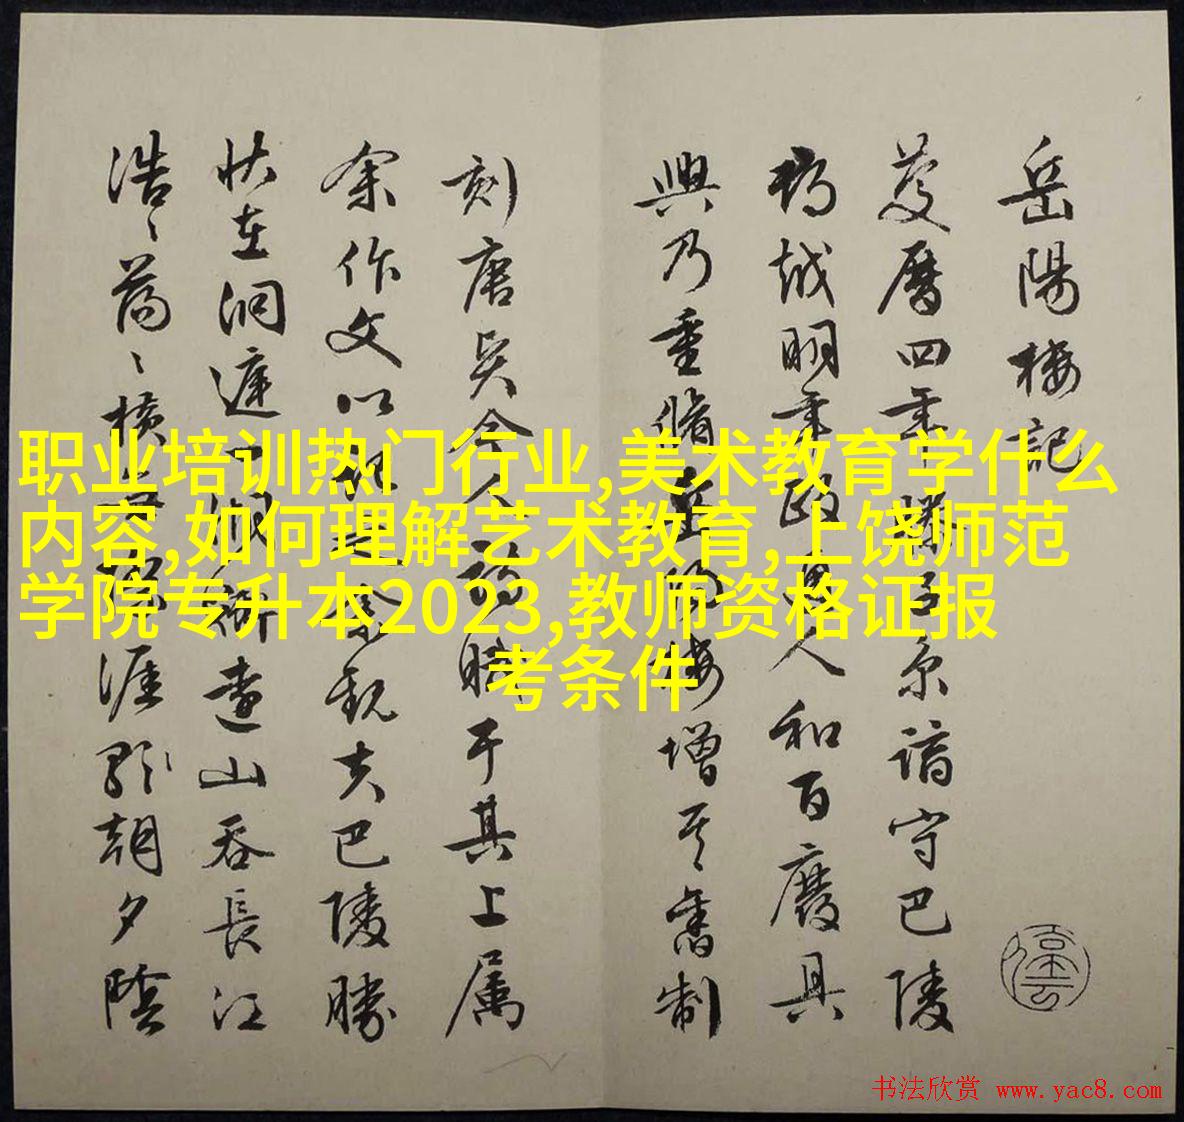 岳陽樓記
慶曆四年滕子京謫守巴陵
郡越明年政通人和百廢具
興乃重脩岳陽樓增其舊制
刻唐賢今人詩賦于其上属
余作文以記之余觀夫巴陵勝
状在洞庭一湖銜遠山吞長江
浩〻蕩〻橫無際涯朝夕陰
职业培训热门行业,美术教育学什么
内容,如何理解艺术教育,上饶师范
学院专升本2023,教师资格证报
考条件
书法欣赏 www.yac8.com